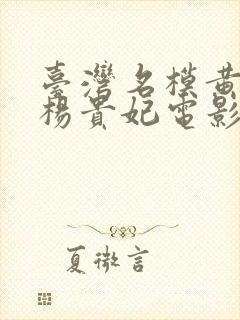 臺灣名模黃
楊貴妃電影
夏微言